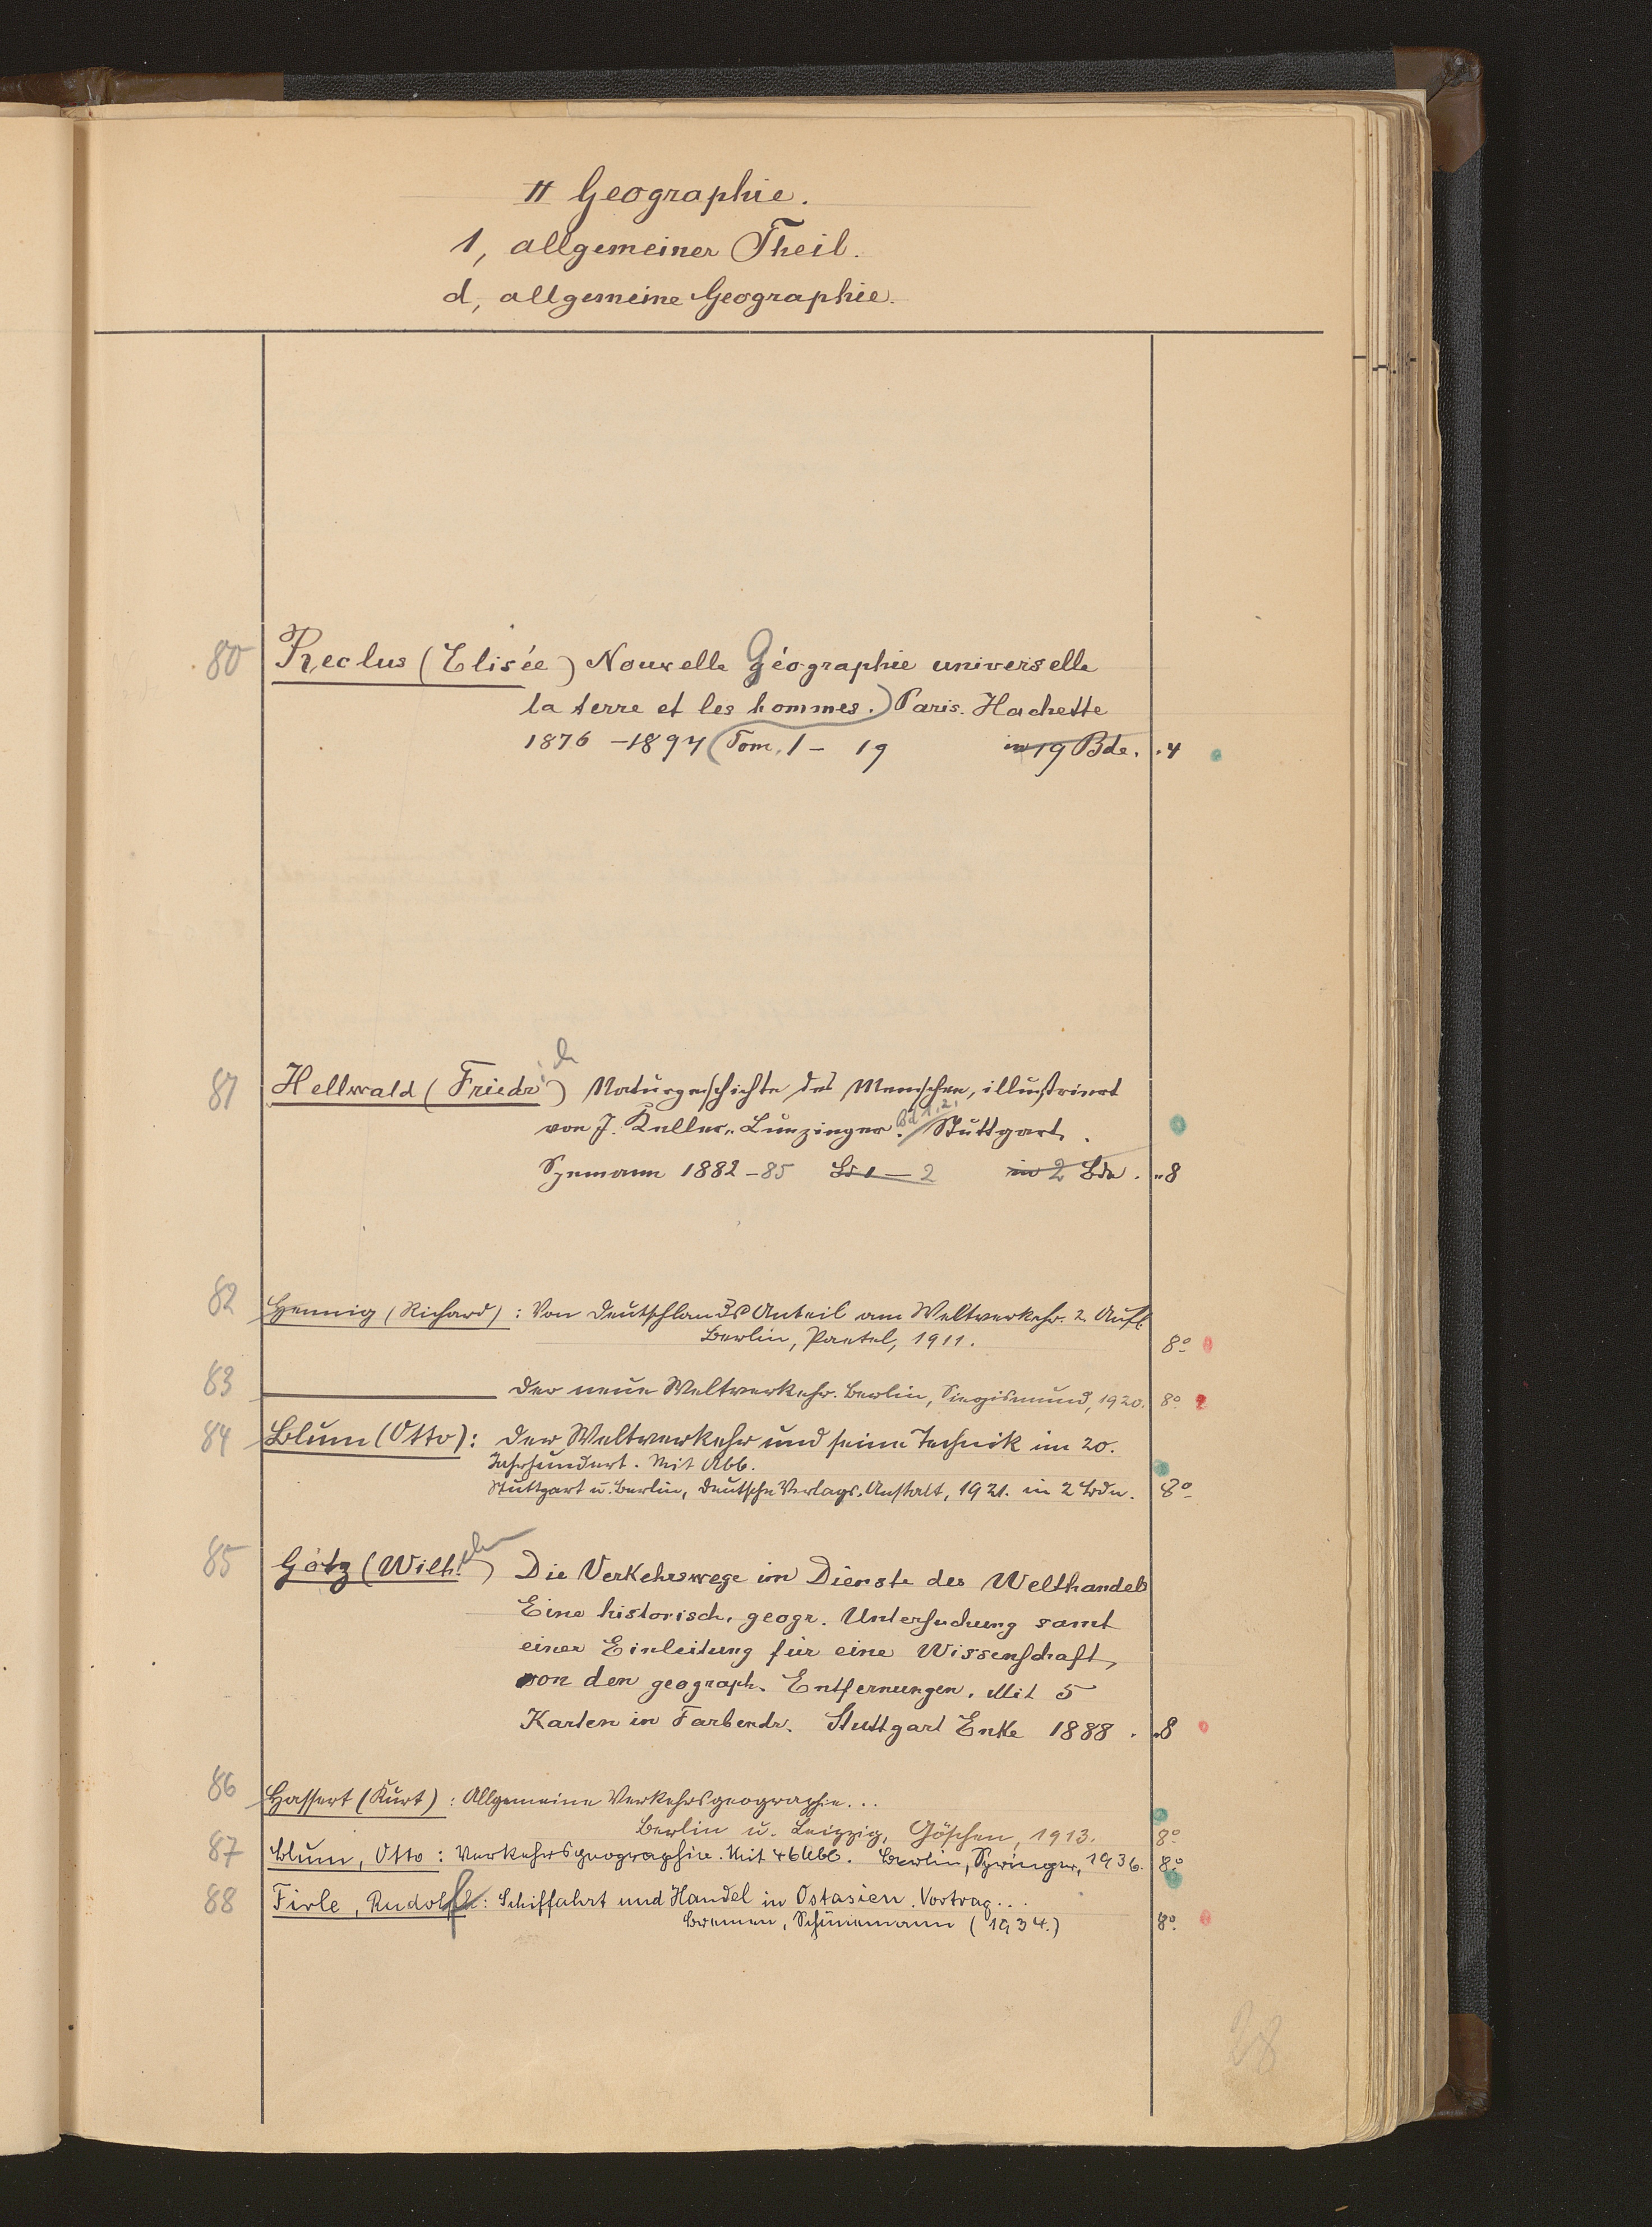 II Geographie.
1, allgemeiner Theil.
d, allgemeine Geographie.
80 Reclus (Elisée) Nouvelle Géographie universelle
la terre et les hommes.) Paris. Hachette
1876 - 1894 (Tom. 1 - 19 in 19 Bde. . 4
81 Hellwald (Friedrich) Naturgeschichte des Menschen, illustriert
von J. Keller-Leuzinger. Bd 1.2. Stuttgart.
Spemann 1882-85 Bd 1 - 2 in 2 Bde. „8
82 Hennig (Richard): Von Deutschlands Anteil am Weltverkehr. 2. Aufl.
Berlin, Paetel, 1911. 8º
83 Der neue Weltverkehr. Berlin, Siegismund, 1920. 8º
84 Blum (Otto): Der Weltverkehr und seine Technik im 20.
Jahrhundert. Mit Abb.
Stuttgart u. Berlin, Deutsche Verlags-Anstalt, 1921. in 2 Bdn. 8º
85 Götz (Wilhelm) Die Verkehrswege im Dienste des Welthandels
Eine historisch. geogr. Untersuchung samt
einer Einleitung für eine Wissenschaft,
von den geograph. Entfernungen. Mit 5
Karten in Farbendr. Stuttgart Enke 1888. „8
86 Hassert (Kurt): Allgemeine Verkehrsgeographie...
Berlin u. Leipzig, Göschen, 1913. 8º
87 Blum, Otto: Verkehrsgeographie. Mit 46 Abb. Berlin, Springer, 1936. 8º
88 Firle, Rudolf: Schiffahrt und Handel in Ostasien. Vortrag...
Bremen, Schünemann (1934.) 8º
28